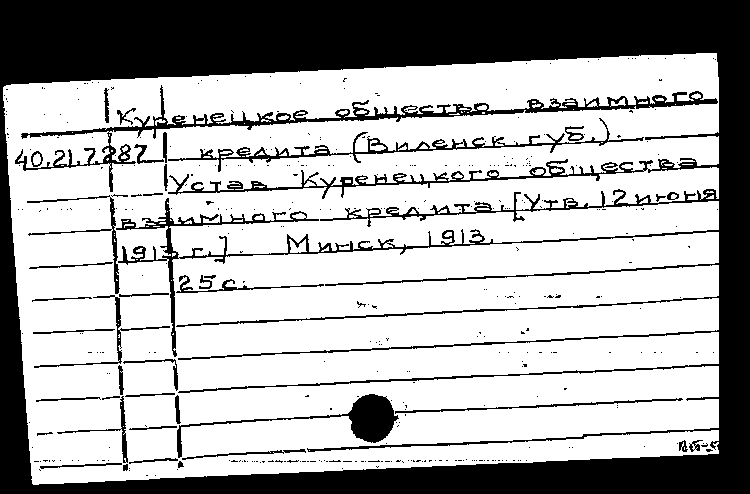 Куренецкое общество взаимного
40.21.7.287 кредита (Виленск. губ.).
Устав Куренецкого общества
взаимного кредита. [Утв. 12 июня
1913 г.] Минск, 1913.
25 с.